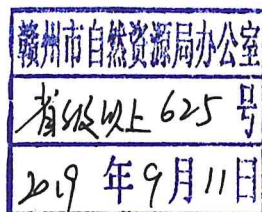 赣州市自然资源局办公室
省级以上625号
2019年9月11日